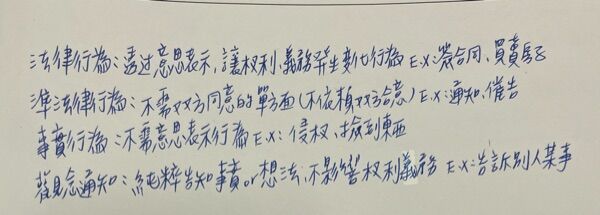 法律行為:透过意思表示,讓权利,義務発生变化行為 E.X:簽合同、買賣房子
準法律行為:不需双方同意的單方面(不依賴双方合意) E.X:通知,催告
事實行為:不需意思表示行為 E.X:侵权、撿到東西
觀念通知:純粹告知事實or想法,不影響权利義務 E.X:告訴別人某事